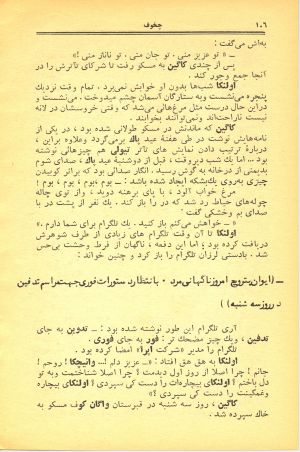 ۱۰۶ چخوف
به‌اش می‌گفت:
ـ « تو عزیز منی . تو جان منی . تو نانار منی !»
پس از چندی کاگین به مسکو رفت تا شرکای تآترش را در
آنجا جمع وجور کند .
اولنکا شب‌ها بدون او خوابش نمی‌برد . تمام وقت نزدیك
پنجره می‌نشست و به ستارگان آسمان چشم میدوخت . می‌نشست و
دراین حال درست مثل مرغ‌هائی می‌شد که وقتی خروسشان در لانه
نیست ناراحت‌اند ونمی‌توانند بخوابند .
کاگین که ماندنش در مسکو طولانی شده بود ، در یکی از
نامه‌هایش نوشت در طی هفتهٔ عید پاك برمی‌گردد وعلاوه براین ،
دربارهٔ ترتیب دادن نمایش های تآتر تیولی هم چیزهائی نوشته
بود ... اما یك شب دیروقت ، قبل از دوشنبهٔ عید پاك ، صدای شوم
بدیمنی از درخانه به گوش رسید . این صدائی بود که براثر کوبیدن
چیزی به‌روی بشکه‌ایجاد شده باشد : ـ بوم ،بوم ، بوم ، بوم !
مرغ خواب آلود ، با پای برهنه دوید ، و از توی چاله
چوله‌های حیاط رد شد که در را باز کند . یك نفر از پشت در با
صدای بم وخشکی گفت :
ـ « خواهش می‌کنم باز کنید . یك تلگرام برای شما دارم .»
اولنکا تا آن وقت تلگرام های زیادی از طرف شوهرش
دریافت کرده بود ؛ اما این دفعه ، ناگهان از فرط وحشت بی‌حس
شد . بادستی لرزان تلگرام را باز کرد و چنین خواند :
ـ ((ایوان پتروویچ امروز ناگهانی مرد . با نتظارد ستورات فوری جهت مراسم تدفین
د رروزسه شنبه) )
آری تلگرام این طور نوشته شده بود : ـ تدوین به جای
تدفین ، و یك چیز مضحك تر : فور به جای فوری .
تلگرام را مدیر «شرکت اپرا» امضا کرده بود .
اولنکا به هق هق افتاد : « ـ عزیز دلم ! ـ وانیچکا! روحم !
جانم ! چرا اصلا از روز اول دیدمت ؟ چرا اصلا شناختمت و به تو
دل باختم ؟ اولنکای بیچاره‌ات را دست کی سپردی ؟ اولنکای بیچاره
وغمگینت را دست کی سپردی ؟»
کاگین ، روز سه شنبه در قبرستان واگان کوف مسکو به
خاك سپرده شد .